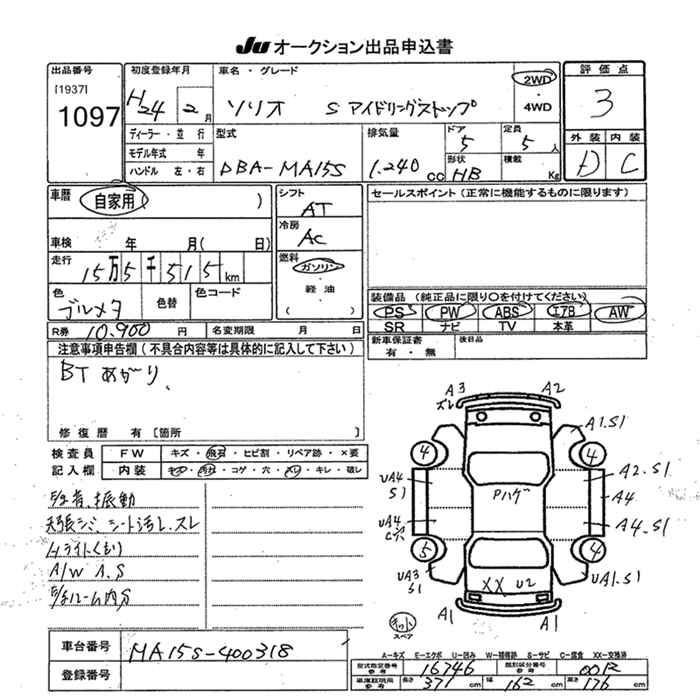 JU オークション出品申込書
出品番号 初度登録年月 車名・グレード 評価点
[1937] 1097
H24 2月
ソリオ S アイドリングストップ
2WD・4WD
3
ディーラー・並行 型式 排気量 ドア 定員 外装 内装
モデル年式 年
ハンドル 左・右
DBA-MA15S 1.240cc 5 5人 D C
形状 HB 積載 Kg
車歴 自家用( ) シフト AT セールスポイント(正常に機能するものに限ります)
冷房 AC
車検 年 月( 日)
走行 15万5千515km 燃料 ガソリン・軽油
色 ゴルメタ 色替 色コード
装備品(純正品に限り〇を付けてください)
PS PW ABS エアB AW
SR ナビ TV 本革
R券 10.900円 名変期限 月 日
新車保証書 有・無 後日品
注意事項申告欄(不具合内容等は具体的に記入して下さい)
BTあがり、
修復歴 有[箇所 ]
検査員記入欄 FW キズ・飛石・ヒビ割・リペア跡・×要
内装 キズ・汚れ・コゲ・穴・スレ・キレ・破レ
振動
天張シミ、シート汚レ、スレ
Hライトくもり
A/W A.S
A3 ズレ A2
A1.S1
4 4
UA4 S1 Pハゲ A2.S1
A4
UA4 A4.S1
5 4
UA3 S1 XX U2 UA1.S1
A1 A1
スペア
車台番号 MA15S-400318
登録番号
A-キズ E-エクボ U-凹み W-補修跡 S-サビ C-腐食 XX-交換済
型式指定番号 参考 16746 類別区分番号 参考 0012
車庫証明用 参考 長さ 371cm 幅 162cm 高さ 176cm